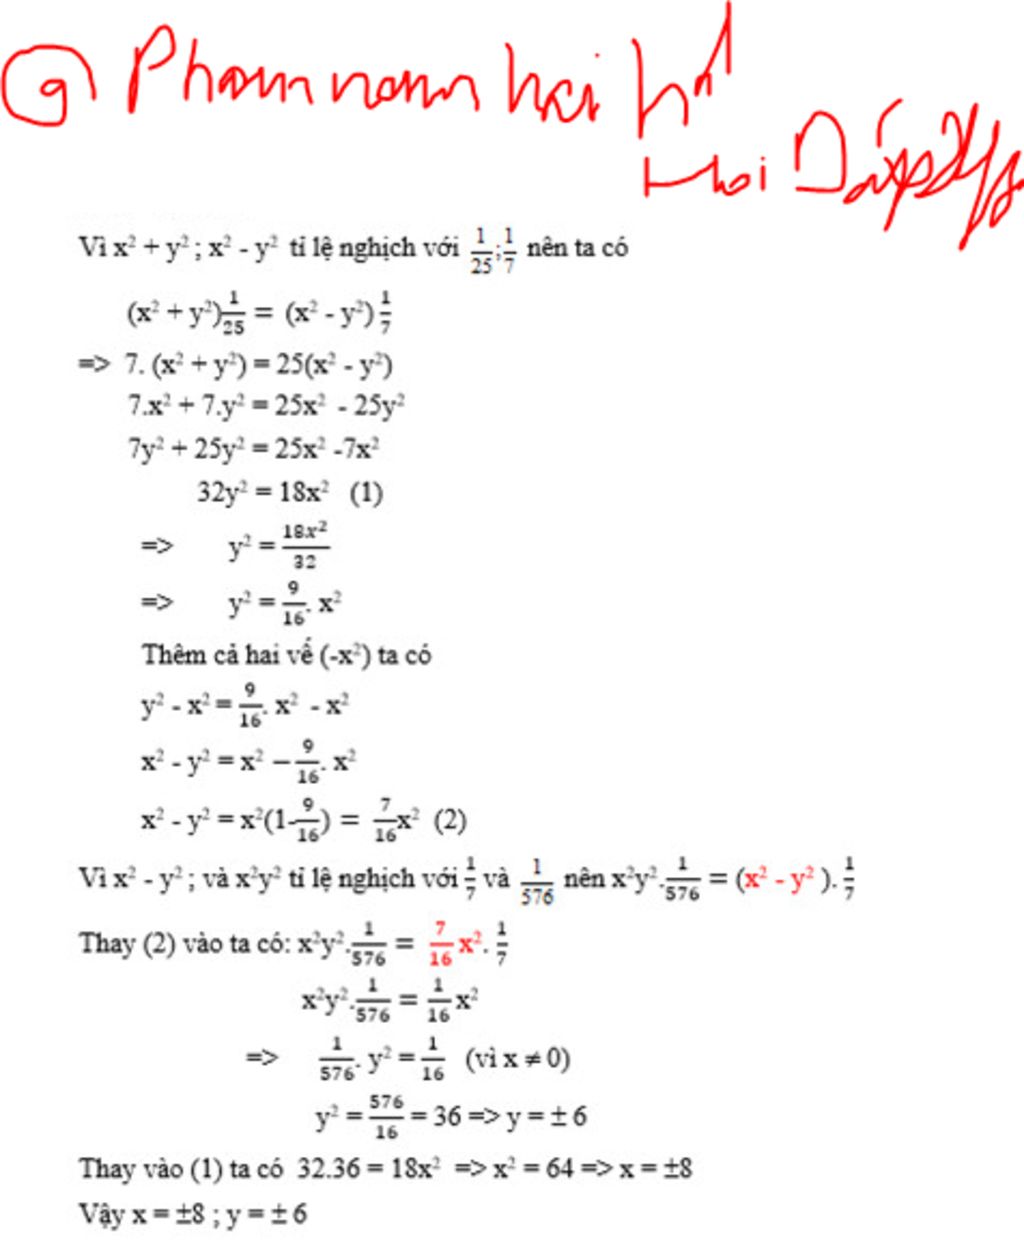 Phạm nam hải
Hỏi Đáp
Vì x² + y² ; x² - y² tỉ lệ nghịch với 1/25 ; 1/7 nên ta có
(x² + y²) 1/25 = (x² - y²) 1/7
=> 7. (x² + y²) = 25(x² - y²)
7.x² + 7.y² = 25x² - 25y²
7y² + 25y² = 25x² -7x²
32y² = 18x² (1)
=> y² = 18x²/32
=> y² = 9/16. x²
Thêm cả hai vế (-x²) ta có
y² - x² = 9/16. x² - x²
x² - y² = x² − 9/16. x²
x² - y² = x²(1-9/16) = 7/16x² (2)
Vì x² - y² ; và x²y² tỉ lệ nghịch với 1/7 và 1/576 nên x²y².1/576 = (x² - y² ). 1/7
Thay (2) vào ta có: x²y².1/576 = 7/16 x². 1/7
x²y².1/576 = 1/16 x²
=> 1/576. y² = 1/16 (vì x ≠ 0)
y² = 576/16 = 36 => y = ± 6
Thay vào (1) ta có 32.36 = 18x² => x² = 64 => x = ±8
Vậy x = ±8 ; y = ± 6